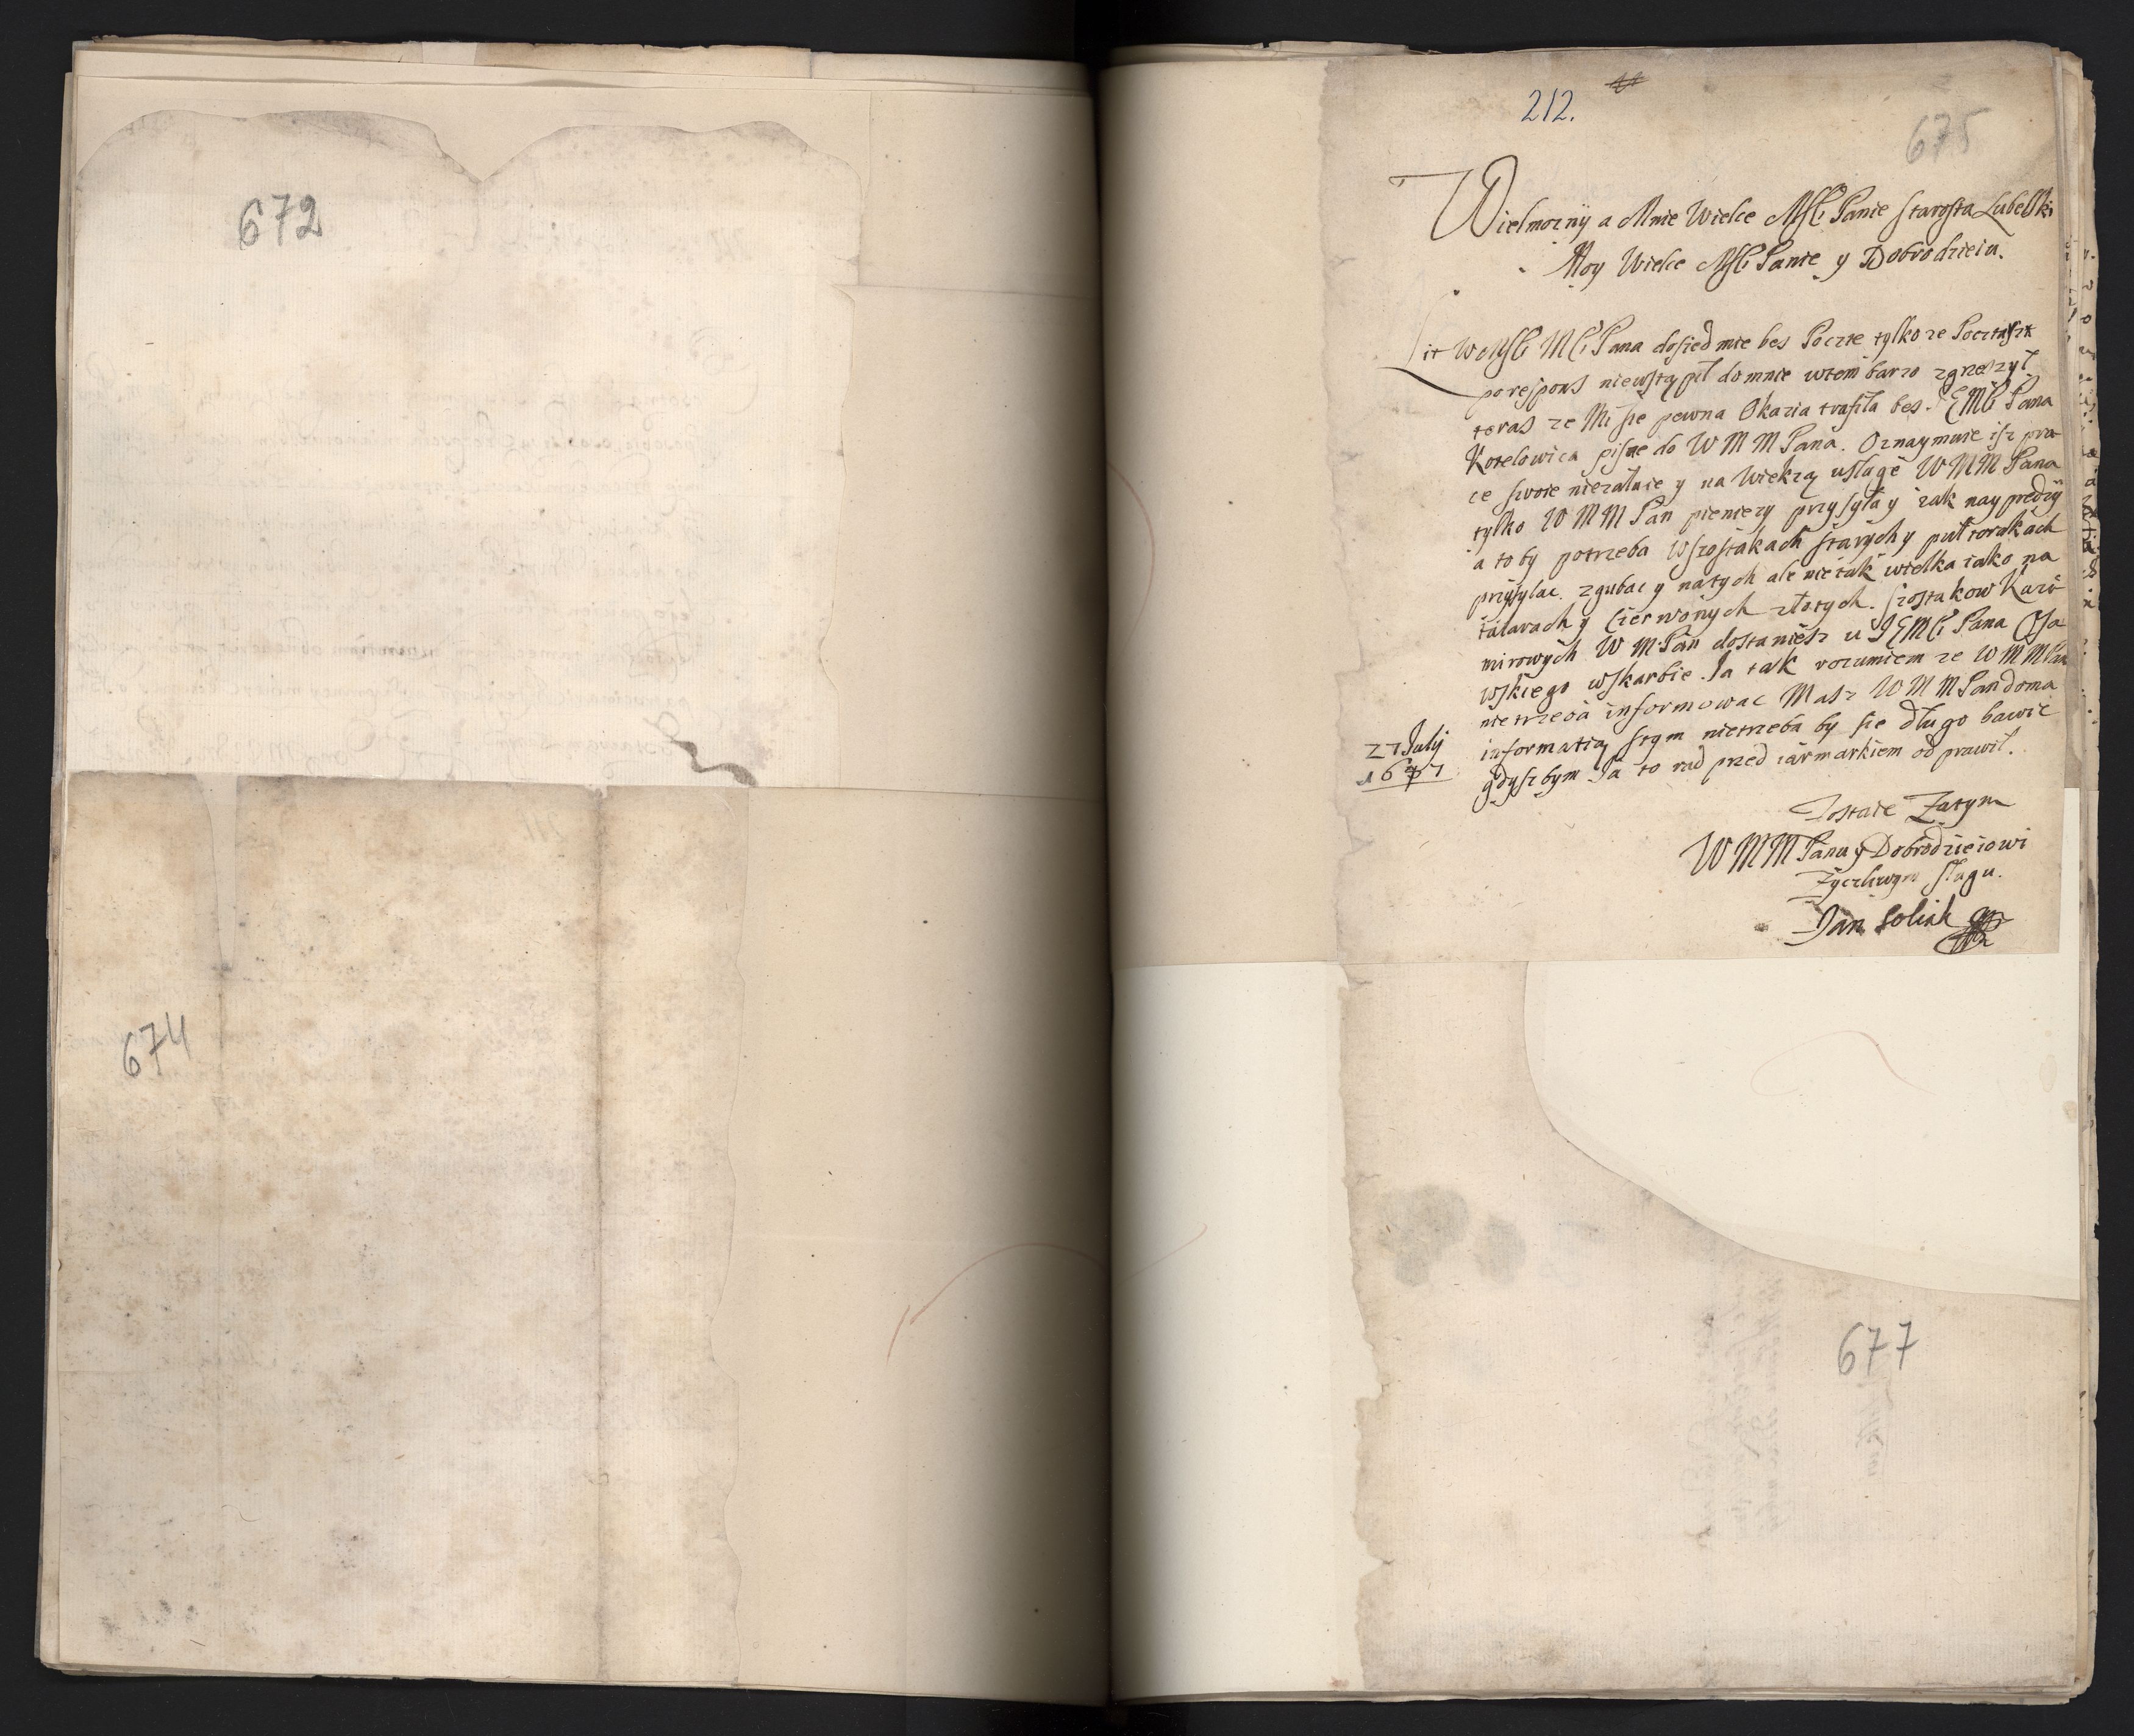 672
674
212.
675
Wielmozny a Mnie Wielce MSC Panie Starosta Lubelski
Moy Wielce MSC Panie y Dobrodzieiu.
List WMSC MC Pana dosied mie bes Poczte tylko ze Pocztarz
po respons niewstąpił do mnie wtem barzo zgrzeszył
teras ze Mi sie pewna Okazia trafila bes JEMC Pana
Kotelowica pisze do W M M Pana. Oznaymuie isz pra
ce swoie niezaluie y na Wiekzą usługe WMM Pana
tylko W M M Pan pieniezy przysyłay iak naypredzy
a to by potrzeba Wszostakach starych y pułtorakach
przysylac. zgubac y natych ale nie tak wielka iako na
talarach y Czerwonych złotych. szostakow Kazi
mirowych W M Pan dostaniesz u JEMC Pana
wskiego wskarbie. Ja tak rozumiem ze W M M Pan
nietrzeba informowac Masz W M M Pan doma
informatią stym nietrzeba by sie długo bawic
gdysz bym Ja to rad przed iarmarkiem od prawił.
27 July
Zostaie Zatym
W M M Panu y Dobrodzieiowi
Zyczliwym sługu.
Jan
677